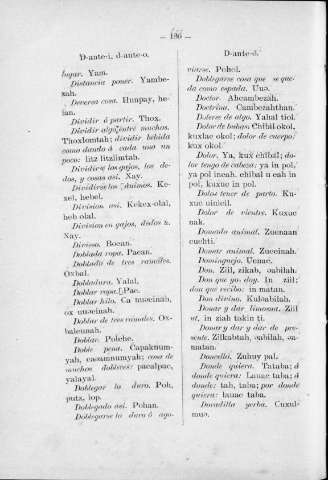 — 136 —
D-ante-i, d-ante-o.
lugar. Yam.
Distancia poner. Yambezah.
Diversa cosa. Hunpay, helan.
Dividir ó partir. Thox.
Dividir algo entre muchos.
Thoxlomtah; dividir bebida
como dando á cada uno un
poco: litz litzlimtah.
Dividir los gajos, los dedos,
y cosas así. Xay.
Dividirse los caminos. Kexel,
hebel.
Division así. Kekex-olal,
heb olal.
Division en gajos, dedos &
Xay.
Diviso. Bocan.
Doblada ropa. Pacan.
Doblado de tres ramales.
Oxbal.
Dobladura. Yalal,
Doblar ropa. Pac.
Doblar hilo. Ca
Doblar de tres ramales. Ox-
Doblar. Polche.
Doble pena. Capaknumyah,
cosa de
muchos dobleces: pacalpac,
yalayal.
Doblegar lo duro. Poh,
puts, lop.
Doblegado así. Pohan.
Doblegarse lo duro ó ago-
D-ante-o.
viarse. Pohol.
Doblegarse cosa que se queda
como espada. Uuo.
Doctor. Ahcambezah.
Doctrina. Cambezahthan.
Dolerse de algo. Yahal tiol.
Dolor de bubas: Chibil okol,
kuxlac okol; dolor de cuerpo:
kux okol.
Dolor. Ya, kux chibal; dolor
tengo de cabeza: ya in pol,
ya pol incah, chibal u cah in
pol, kuxuc in pol.
Dolor tener de parto. Kuxuc
Dolor de vientre. Kuxuc
nak.
Domado animal. Zucnaan
cuchti.
Domar animal. Zuccinah.
Dominguejo. Ucnac.
Don. Ziil, zikab,
Don que yo doy. In ziil;
don que recibo: in matan.
Don divino.
Donar y dar limosna. Ziil
in ziah takin ti.
Donar y dar de presente.
Zilkabtah,
matan.
Doncella. Zuhuy pal.
Donde quiera. Tataba; á
donde quiera: Lauac taba; á
donde: tab, taba; por donde
quiera: lauac taba.
Doradilla yerba. Cuxul-
muc.